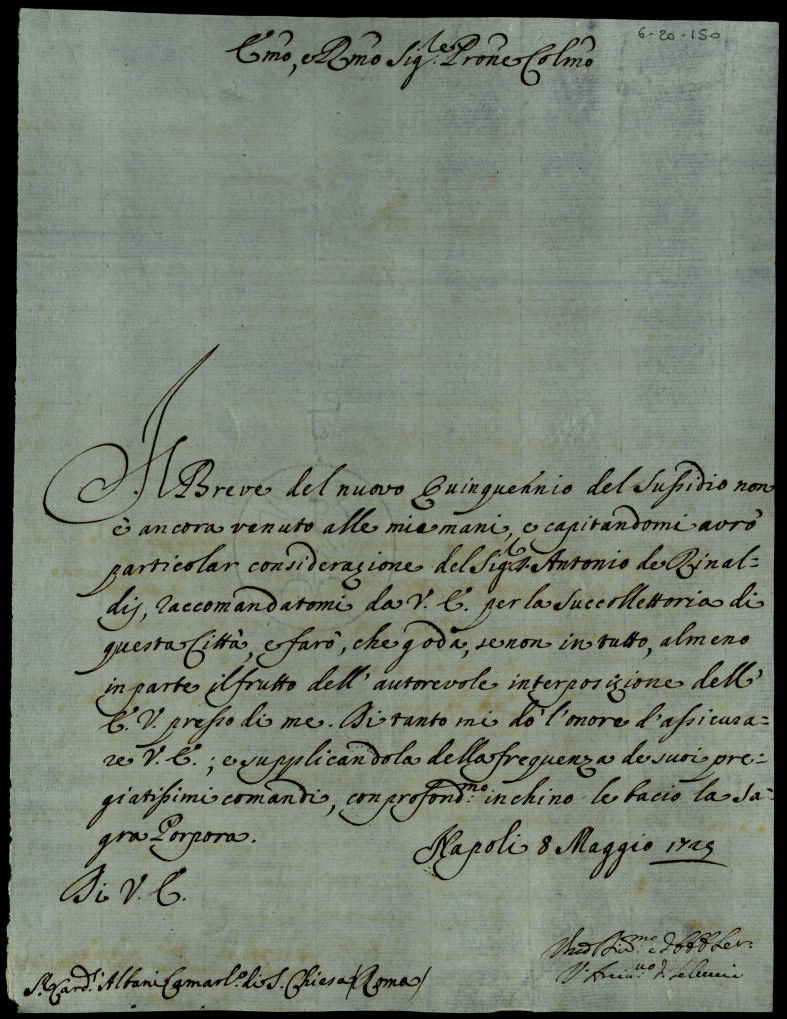 6-20-150
Emo, e Rmo Sig.re Prone Colmo
Il Breve del nuovo Quinquennio del Sussidio non
è ancora venuto alle mie mani, e capitandomi avrò
particolar considerazione del Sig.r Antonio de Rinal=
dij, raccomandatomi da V. E. per la Succollettoria di
questa Città, e farò, che goda, se non in tutto, almeno
in parte il frutto dell' autorevole interposizione dell'
E. V. presso di me. Di tanto mi dò l'onore d'assicura=
re V. E.; e supplicandola della frequenza de suoi pre=
giatissimi comandi, con profond.mo inchino le bacio la Sa=
gra Porpora.
Napoli 8 Maggio
Di V. E.
S.r Card.l Albani Camarl.o di S. Chiesa (Roma)